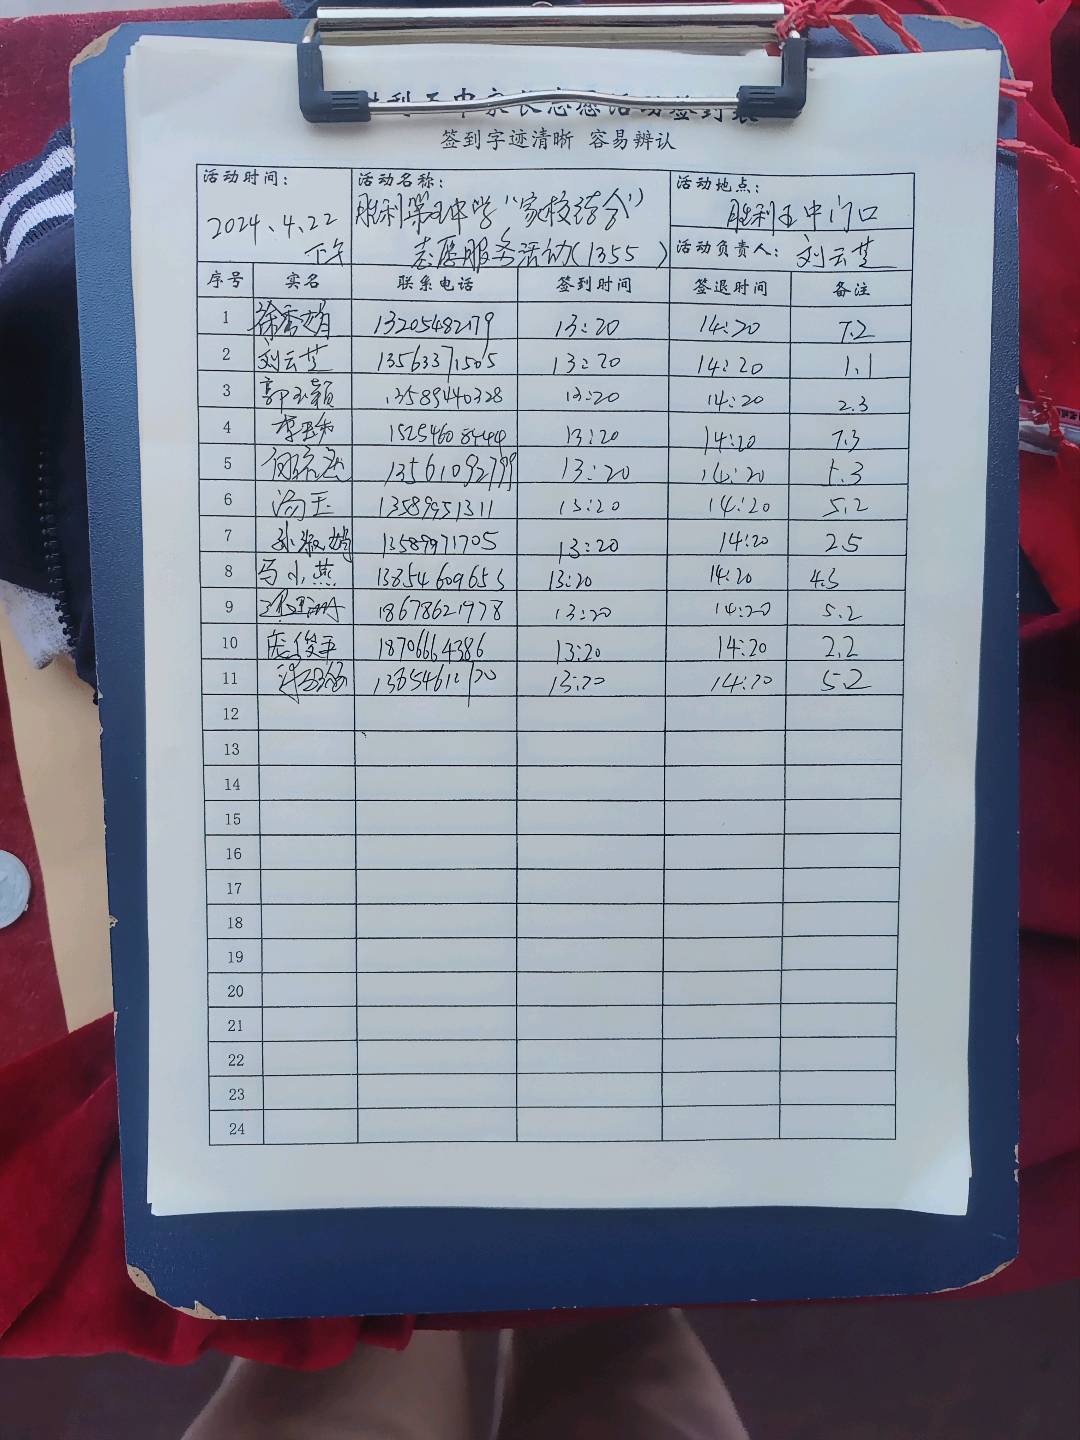 利五中家长志愿活动签到表
签到字迹清晰 容易辨认
活动时间： 2024.4.22 下午
活动名称： 胜利第五中学“家校结合” 志愿服务活动（1355）
活动地点： 胜利五中门口
活动负责人： 刘云芝
序号 实名 联系电话 签到时间 签退时间 备注
1 徐秀娟 13205482179 13:20 14:20 7.2
2 刘云芝 13563371505 13:20 14:20 1.1
3 郭玉颖 13589440328 13:20 14:20 2.3
4 15254608444 13:20 14:20 7.3
5 13561092799 13:20 14:20 1.3
6 冯玉 13589951311 13:20 14:20 5.2
7 孙淑娟 13589971705 13:20 14:20 2.5
8 马小燕 13854609653 13:20 14:20 4.3
9 18678621978 13:20 14:20 5.2
10 庞俊平 18706664386 13:20 14:20 2.2
11 13:20 14:20 5.2
12
13
14
15
16
17
18
19
20
21
22
23
24